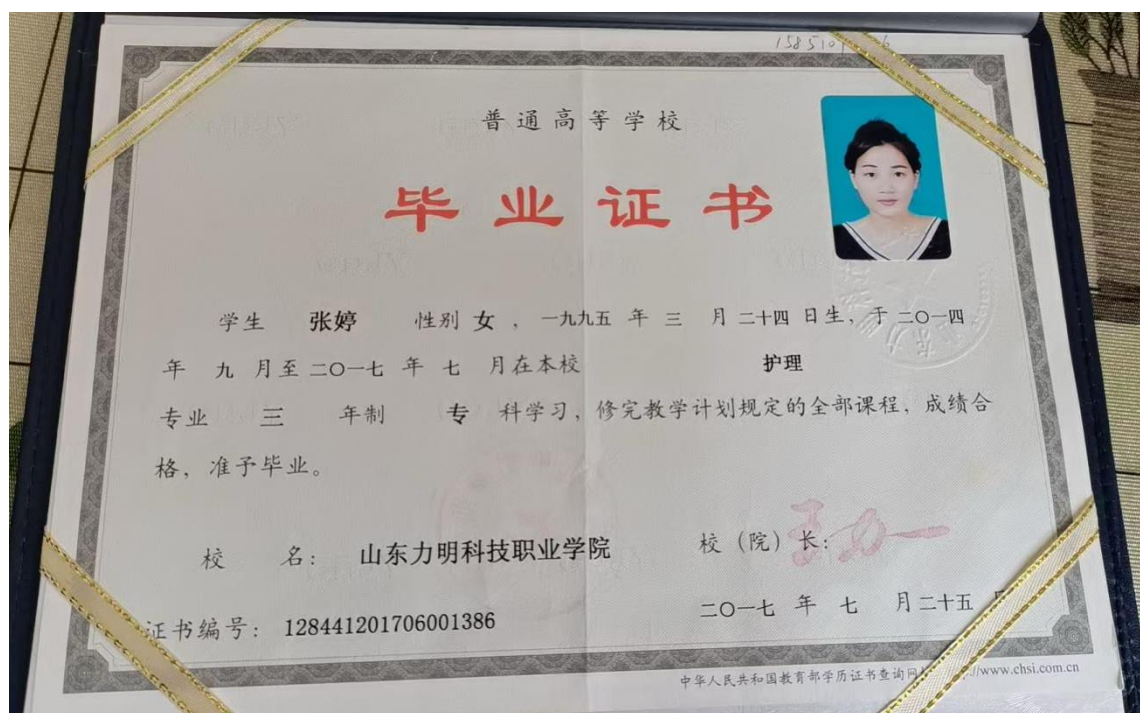 普通高等学校
毕业证书
学生 张婷 性别 女 ，一九九五 年 三 月 二十四 日生，于 二〇一四
年 九 月至 二〇一七 年 七 月在本校 护理
专业 三 年制 专 科学习，修完教学计划规定的全部课程，成绩合
格，准予毕业。
校 名： 山东力明科技职业学院 校（院）长： 王力一
证书编号： 128441201706001386 二〇一七 年 七 月 二十五
中华人民共和国教育部学历证书查询网 //www.chsi.com.cn